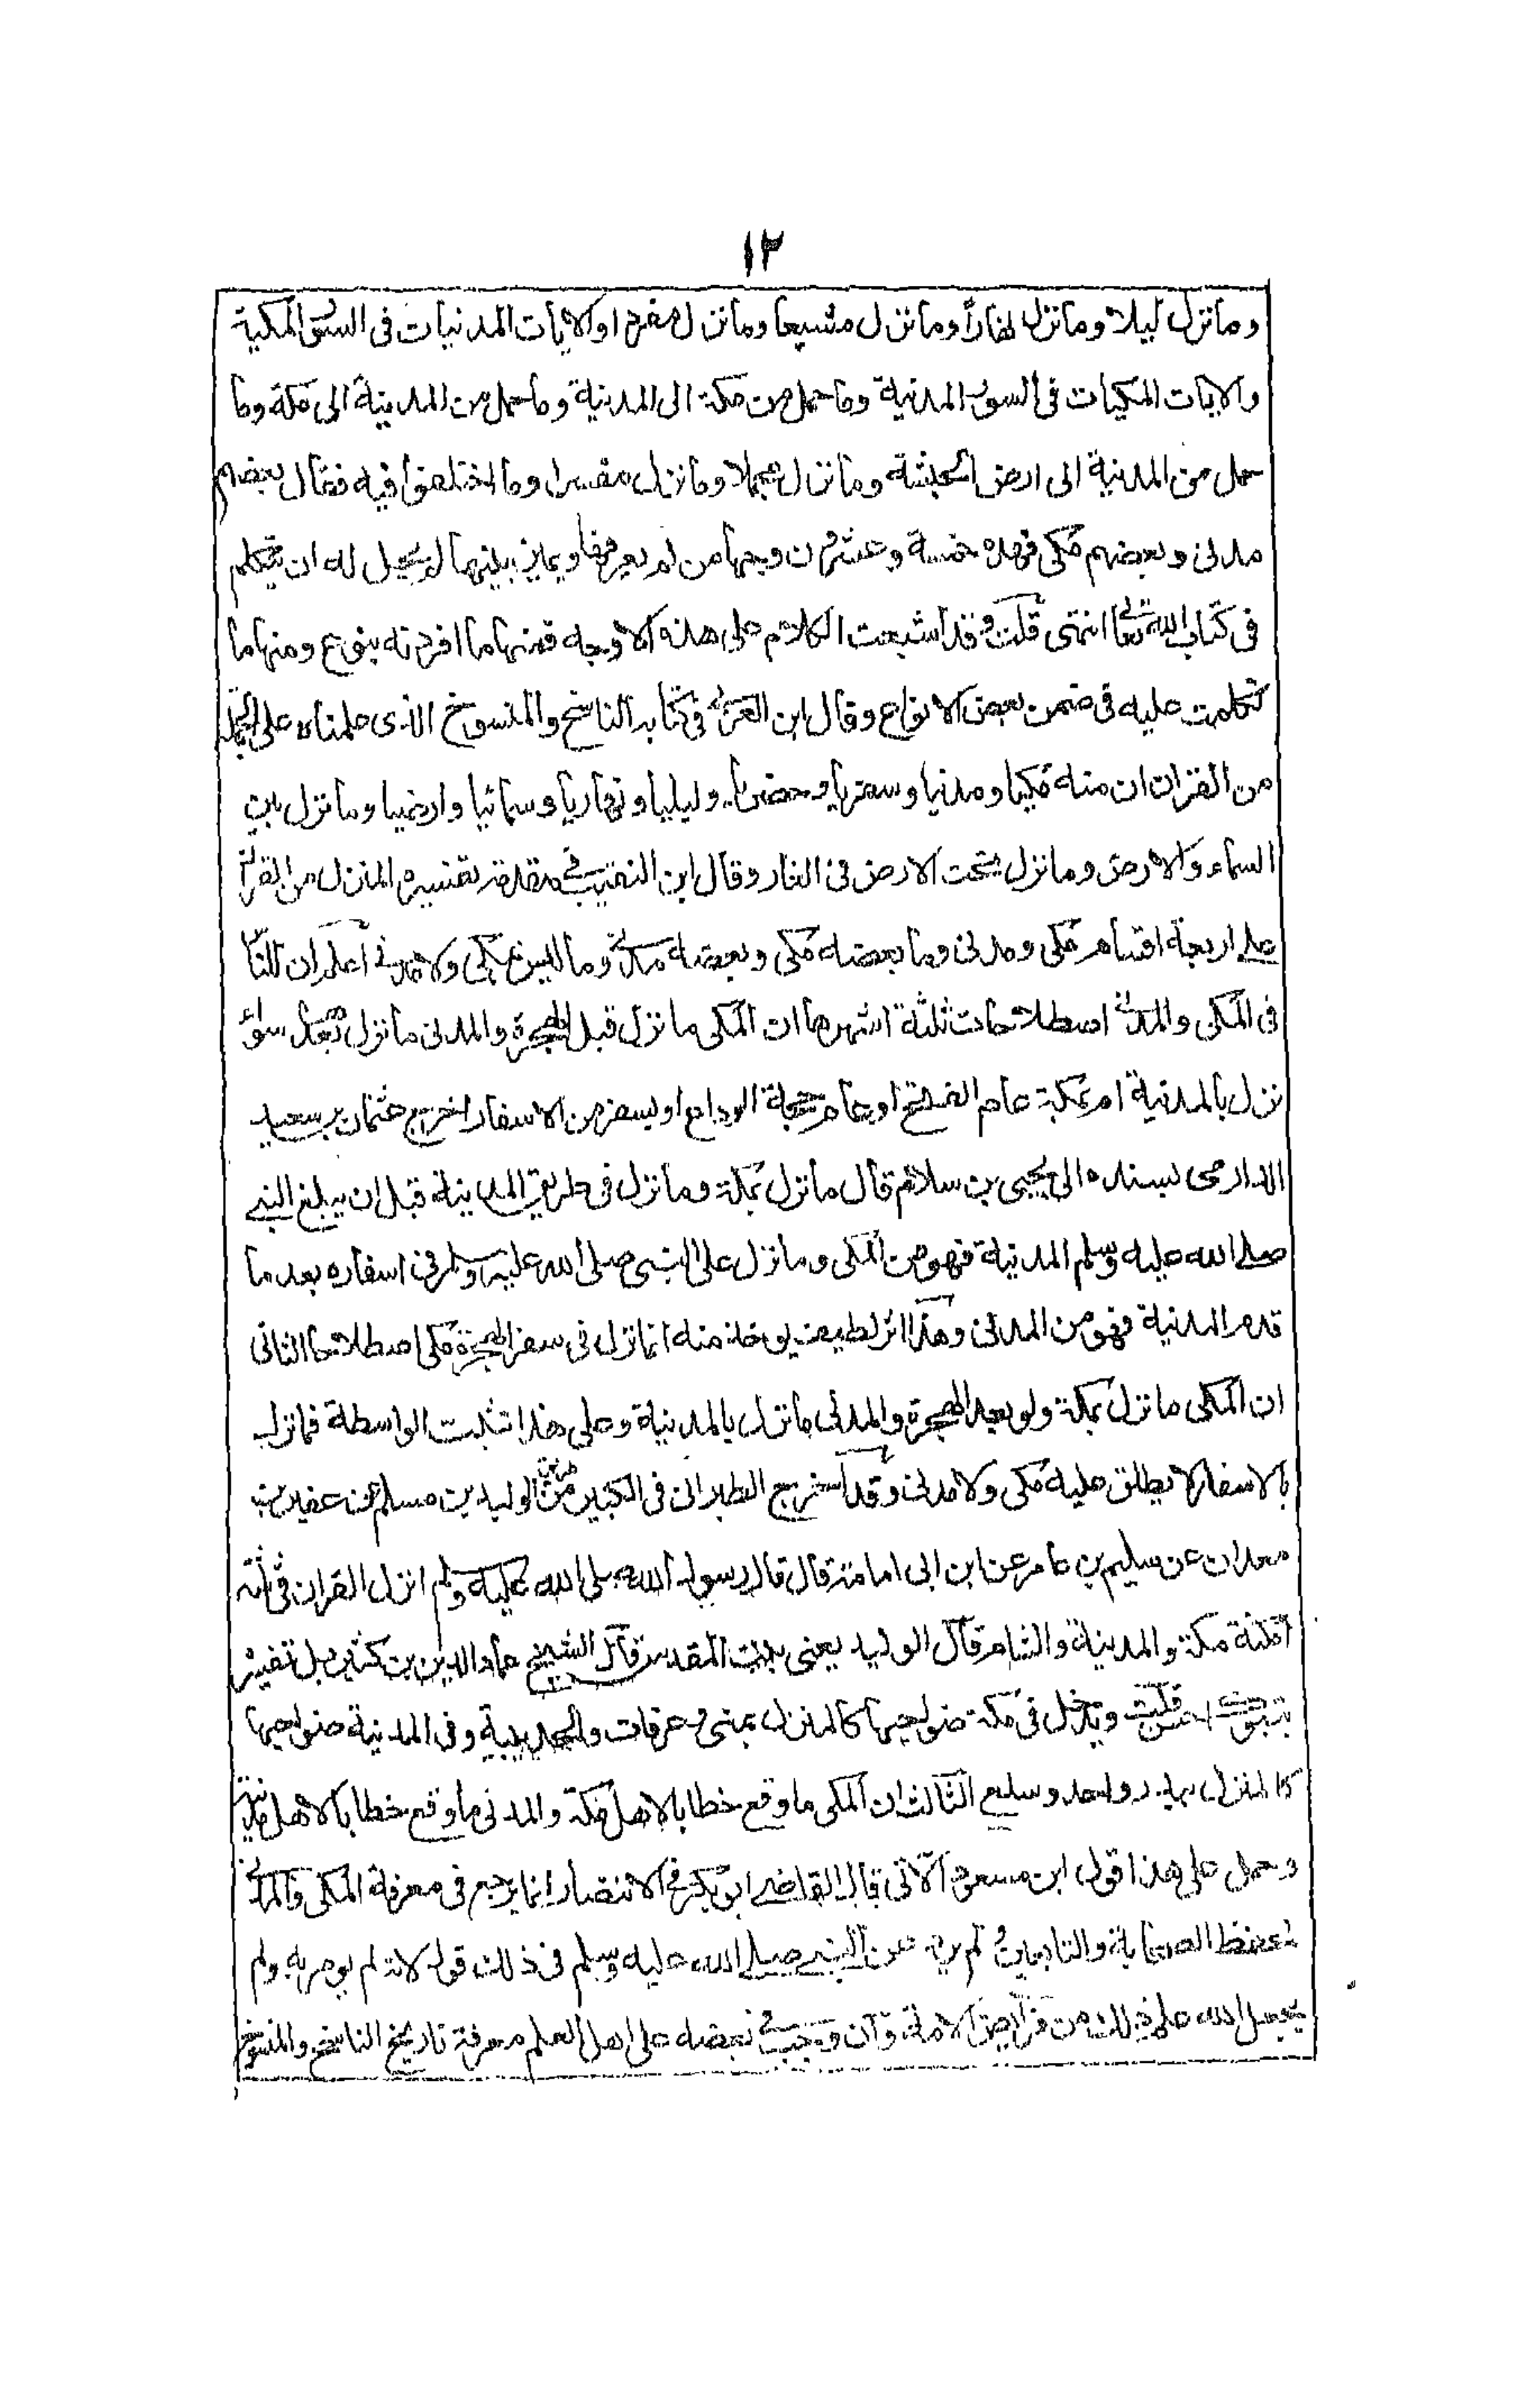 ١٢
وما نزل ليلا وما نزل نهاراً وما نزل مشيعا وما نزل مفردا والايات المدنيات فى السور المكية
والايات المكيات فى السور المدنية وما حمل من مكة الى المدينة وما حمل من المدينة الى مكة وما
حمل من المدينة الى ارض الحبشة وما نزل مجملا وما نزل مفسرا وما اختلفوا فيه فقال بعضهم
مدنى وبعضهم مكى فهذه خمسة وعشرون وجها من لم يعرفها ويمايز بينها لم يحل له ان يتكلم
فى كتاب الله تعالى انتهى قلت وقد اشبعت الكلام على هذه الاوجه فمنها ما افردته بنوع ومنها ما
تكلمت عليه فى ضمن بعض الانواع وقال ابن العربى فى كتابه الناسخ والمنسوخ الذى علمناه على الجملة
من القران ان منه مكيا ومدنيا وسفريا وحضريا وليليا ونهاريا وسمائيا وارضيا وما نزل بين
السماء والارض وما نزل تحت الارض فى الغار وقال ابن النقيب فى مقدمة تفسيره المنزل من القران
على اربعة اقسام مكى ومدنى وما بعضه مكى وبعضه مدنى وما ليس بمكى ولا مدنى اعلم ان للناس
فى المكى والمدنى اصطلاحات ثلثة اشهرها ان المكى ما نزل قبل الهجرة والمدنى ما نزل بعدها سواء
نزل بالمدينة ام بمكة عام الفتح او عام حجة الوداع او بسفر من الاسفار اخرج عثمان بن سعيد
الدارمى بسنده الى يحيى بن سلام قال ما نزل بمكة وما نزل فى طريق المدينة قبل ان يبلغ النبى
صلى الله عليه وسلم المدينة فهو من المكى وما نزل على النبى صلى الله عليه وسلم فى اسفاره بعد ما
قدم المدينة فهو من المدنى وهذا اثر لطيف يوخذ منه ان ما نزل فى سفر الهجرة مكى اصطلاحا الثانى
ان المكى ما نزل بمكة ولو بعد الهجرة والمدنى ما نزل بالمدينة وعلى هذا تثبت الواسطة فما نزل
بالاسفار لا يطلق عليه مكى ولا مدنى وقد اخرج الطبرانى فى الكبير من طريق الوليد بن مسلم عن عفير بن
معدان عن سليم بن عامر عن ابن ابى امامة قال قال رسول الله صلى الله عليه وسلم انزل القران فى ثلثة
امكنة مكة والمدينة والشام قال الوليد يعنى بيت المقدس قال الشيخ عماد الدين بن كثير بل تفسيره
بتبوك احسن قلت ويدخل فى مكة ضواحيها كالمنزل بمنى وعرفات والحديبية وفى المدينة ضواحيها
كالمنزل ببدر واحد وسلع الثالث ان المكى ما وقع خطابا لاهل مكة والمدنى ما وقع خطابا لاهل المدينة
وحمل على هذا قول ابن مسعود الآتى قال القاضى ابو بكر فى الانتصار انما يرجع فى معرفة المكى والمدنى
لحفظ الصحابة والتابعين ولم يرد عن النبى صلى الله عليه وسلم فى ذلك قول لانه لم يومر به ولم
يجعل الله علم ذلك من فرائض الامة وان وجب فى بعضه على اهل العلم معرفة تاريخ الناسخ والمنسوخ